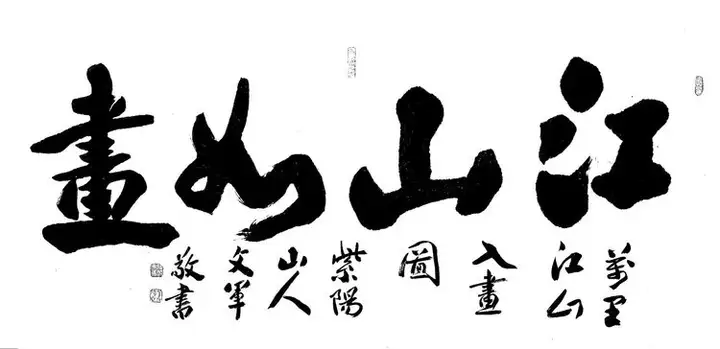 江山如畫
萬里
江山
入畫
圖
紫陽
山人
文軍
敬書